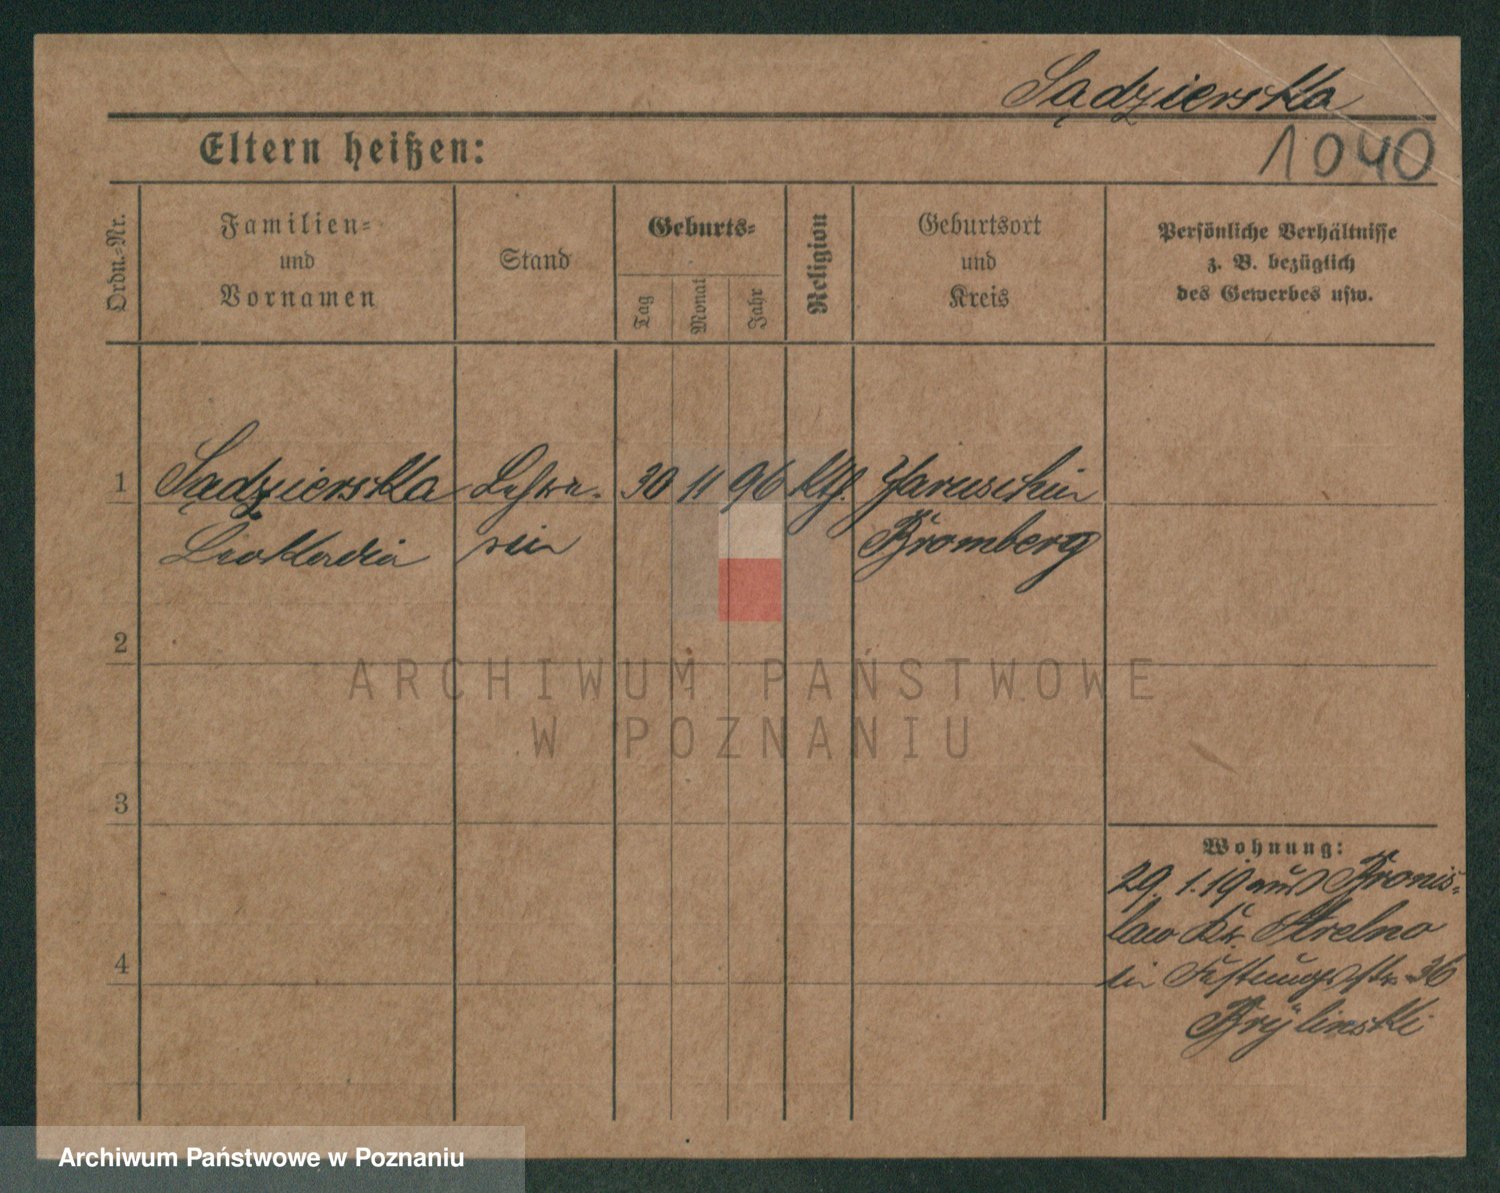 Sądzierska
1040
Eltern heißen:
Ordn.-Nr.
Familien-
und
Vornamen
Stand
Geburts-
Tag
Monat
Jahr
Religion
Geburtsort
und
Kreis
Persönliche Verhältnisse
z. B. bezüglich
des Gewerbes usw.
1 Sądzierska Lehre- 30 11 96 kth. Jaruschin
Leokadia rin Bromberg
2
3
4
Wohnung:
29.1.19 aus Bronis-
law Kr. Strelno
bei Festungsstr. 36
Brÿlinski
ARCHIWUM PAŃSTWOWE
W POZNANIU
Archiwum Państwowe w Poznaniu